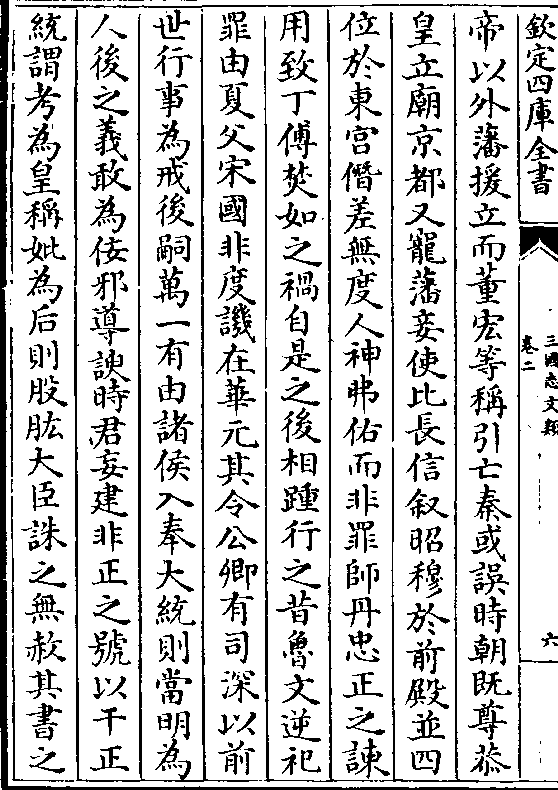 欽定四庫全書
三國志文類
卷二
六
帝以外藩援立而董宏等稱引亡秦或誤時朝既尊恭
皇立廟京都又寵藩妾使比長信叙昭穆於前殿並四
位於東宮僭差無度人神弗佑而非罪師丹忠正之諫
用致丁傅焚如之禍自是之後相踵行之昔魯文逆祀
罪由夏父宋國非度譏在華元其令公卿有司深以前
世行事為戒後嗣萬一有由諸侯入奉大統則當明為
人後之義敢為佞邪導諛時君妄建非正之號以干正
統謂考為皇稱妣為后則股肱大臣誅之無赦其書之